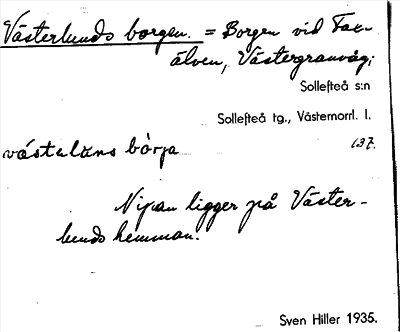 Västerlunds borgen. = Borgen vid Fax-
älven, Västergranvåg;
Sollefteå s:n
Sollefteå tg., Västernorrl. l.
västalăns bòrja 137.
Nipan ligger på Väster-
lunds hemman.
Sven Hiller 1935.